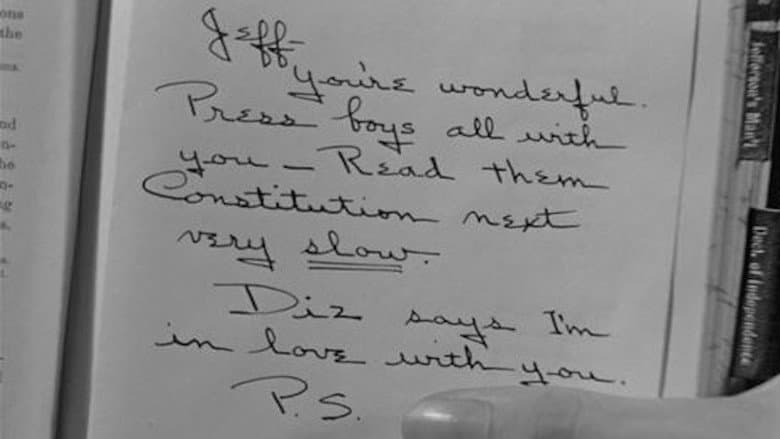 ons
the
nd
n-
he
n-
g
s.
Jeff-
you're wonderful.
Press boys all with
you — Read them
Constitution next
very slow.
Diz says I'm
in love with you.
P.S.
Jefferson's Man'l
Decl. of Independence